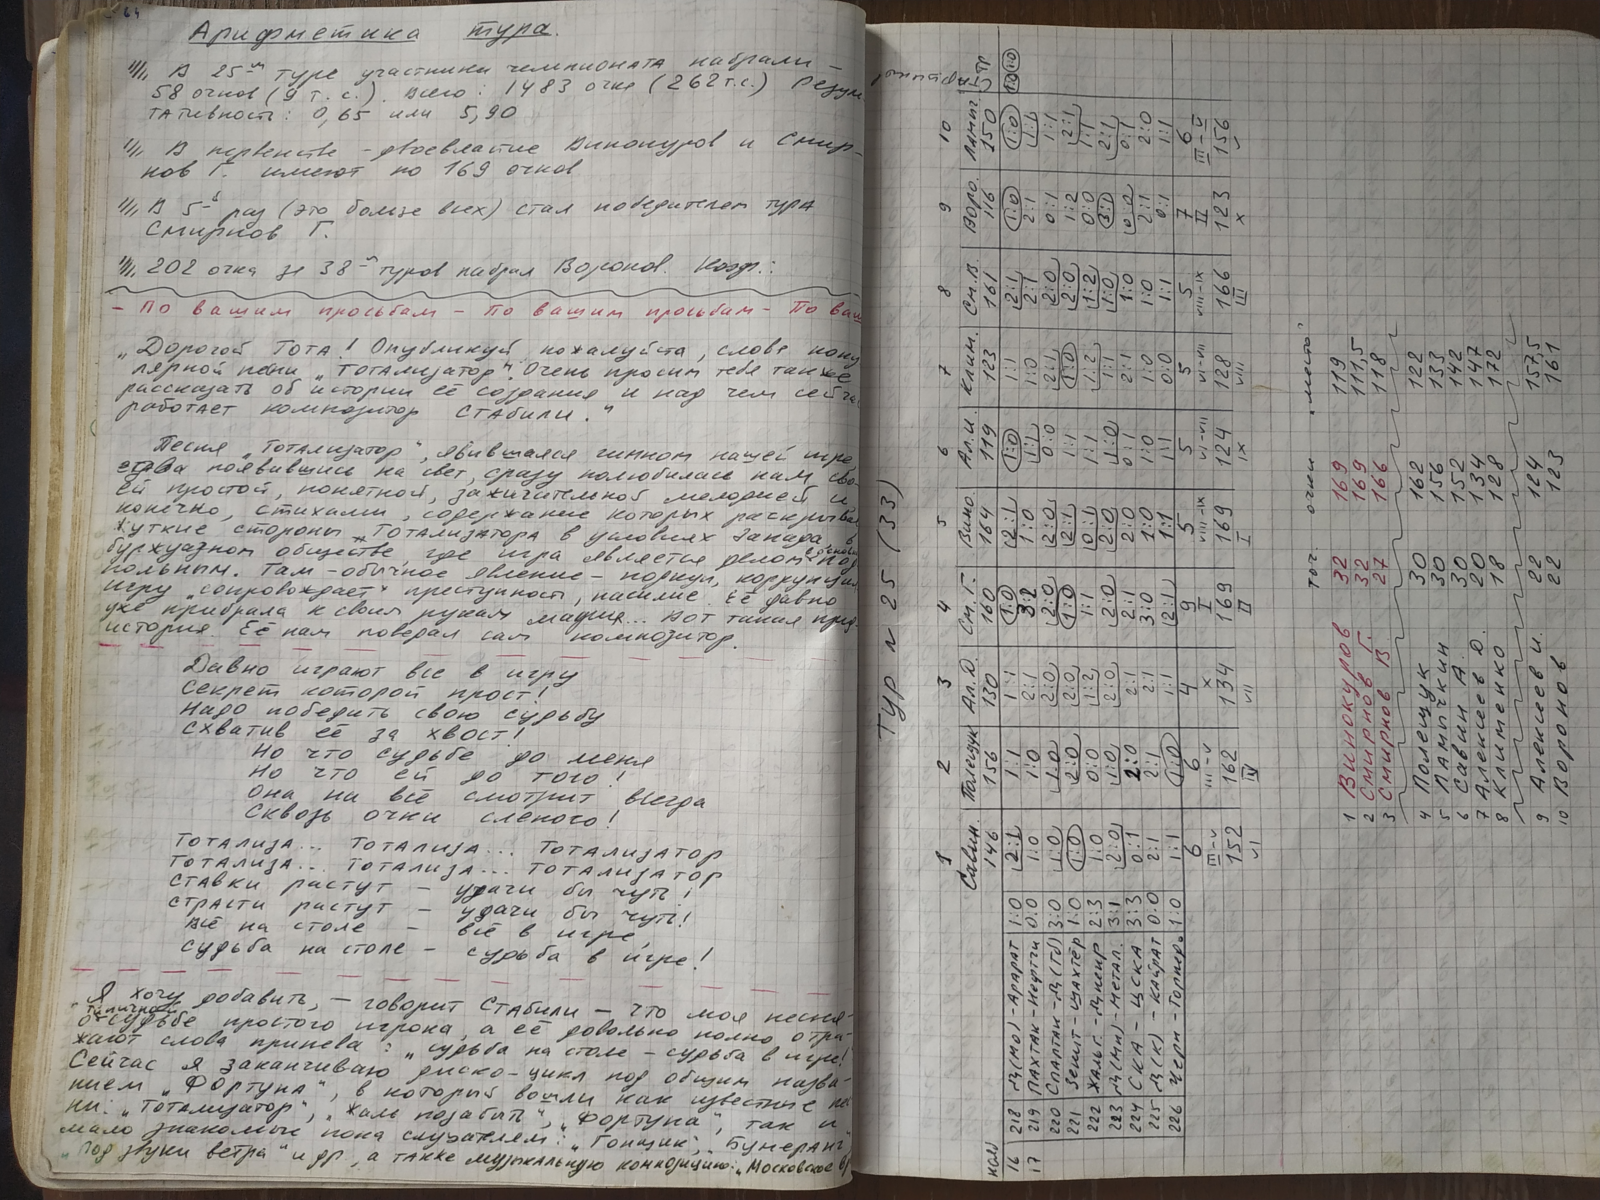 64
Арифметика тура.
В 25-м туре участники чемпионата набрали -
58 очков (9 т.с.). Всего: 1483 очка (262 т.с.) Резуль
тативность: 0,65 или 5,90
В первенстве - двоевластие Винокуров и Смир-
нов Г. имеют по 169 очков
В 5-й раз (это больше всех) стал победителем тура
Смирнов Г.
202 очка за 38-м туров набрал Воронов. Коэф.:
- По вашим просьбам - По вашим просьбам - По ваш
„Дорогой Тота! Опубликуй, пожалуйста, слова попу
лярной песни „Тотализатор". Очень просим тебя также
рассказать об истории её создания и над чем сейчас
работает композитор Стабили."
Песня „Тотализатор", явившаяся гимном нашей игре,
едва появившись на свет, сразу полюбилась нам сво-
ей простой, понятной, зажигательной мелодией и
конечно, стихами, содержание которых раскрывает
жуткие стороны „Тотализатора в условиях Запада, в
буржуазном обществе, где игра является делом под
польным. Там - обычное явление - подкуп, коррупция
игру „сопровождает" преступность, насилие. Её давно
уже прибрала к своим рукам мафия... Вот такая пред-
история. Её нам поведал сам композитор.
Давно играют все в игру
Секрет которой прост!
Надо победить свою судьбу
Схватив её за хвост!
Но что судьбе до меня
Но что ей до того!
Она на всё смотрит всегда
Сквозь очки слепого!
Тотализа... Тотализа... Тотализатор
Тотализа... Тотализа... Тотализатор
Ставки растут - удачи бы чуть!
Страсти растут - удачи бы чуть!
Всё на столе - всё в игре
Судьба на столе - судьба в игре!
Я хочу добавить, - говорит Стабили - что моя песня-
о типичной судьбе простого игрока, а её довольно полно отра-
жают слова припева: „судьба на столе - судьба в игре!
Сейчас я заканчиваю диско-цикл под общим назва-
нием „Фортуна", в который вошли как известные пе
ни: „Тотализатор", „Жаль позабыть", „Фортуна", так и
мало знакомые пока слушателям: „Гонщик", „Бумеранг"
„Под звуки ветра" и др, а также музыкальную композицию: „Московское в
Тур n 25 (33)
1 2 3 4 5 6 7 8 9 10
Савин. Полещук Ал.Д. См.Г. Вино. Ал.И. Клим. См.В. Воро. Памят
146 156 130 160 164 119 123 161 116 150
16 218 Д(Мо) - Арарат 1:0 2:1 1:1 1:1 1:0 2:1 1:0 1:1 2:1 1:0 1:0
17 219 Пахтак - Нефтчи 0:0 1:0 1:0 2:1 3:2 1:0 1:1 1:0 2:1 2:1 1:1
220 Спартак - Д(Тб) 3:0 1:0 1:0 2:0 2:0 2:0 0:0 2:1 2:0 0:1 1:1
221 Зенит - Шахтёр 1:0 1:0 2:0 2:0 1:0 2:1 1:1 1:0 2:0 1:2 2:1
222 Жальг. - Днепр 2:3 1:0 0:0 1:2 1:1 0:1 1:1 1:2 1:2 0:0 1:1
223 Д(Мн) - Метал. 3:1 2:0 1:0 2:0 2:0 2:0 1:0 1:1 1:0 3:0 2:1
224 СКА - ЦСКА 3:3 0:1 2:0 2:1 2:1 2:0 0:1 2:1 1:0 0:0 0:1
225 Д(К) - Кайрат 0:0 2:1 2:1 2:1 3:0 1:0 1:0 1:0 1:0 2:1 2:0
226 Черн - Торпедо 1:0 1:1 1:0 1:1 2:1 1:1 1:1 0:0 1:1 0:1 1:1
6 6 4 9 5 5 5 5 7 6
III-V III-V X I VIII-IX VI-VII VI-VII VIII-IX II III-V
152 162 134 169 169 124 128 166 123 156
VI IV VII II I IX VIII III X V
точ очки „место"
1 Винокуров 32 169 119
2 Смирнов Г. 32 169 111,5
3 Смирнов В 27 166 118
4 Полещук 30 162 122
5 Памычкин 30 156 133
6 Савин А. 30 152 142
7 Алексеев Д. 20 134 147
8 Клименко 18 128 172
9 Алексеев И. 22 124 157,5
10 Воронов 22 123 161